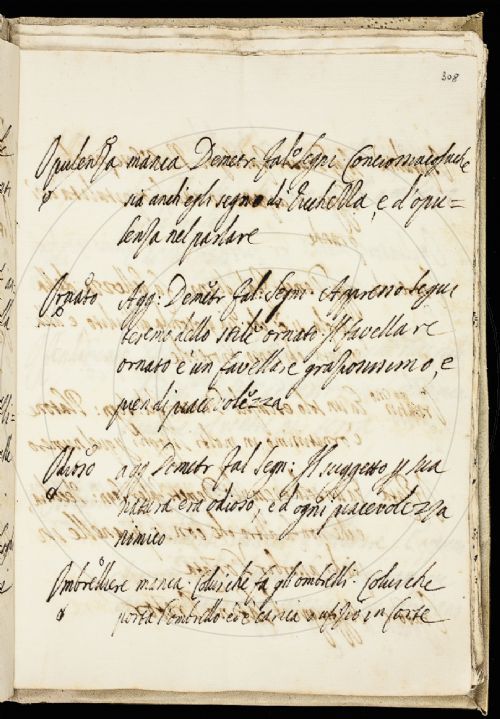 308
Opulenza manca Demetr. fal. Segni
sia anch'egli segno di Ricchezza, e d'opu=
lenza nel parlare
Ornato Agg: Demetr fal: Segni
dello stile ornato. Il favellare
ornato è un favellare graziosissimo, e
pien di piacevolezza
Odioso agg Demetr fal Segn: Il suggetto p sua
natura era odioso, e d'ogni piacevolezza
nimico
Ombrelliere manca. Colui che fa gli ombrelli. Colui che
porta l'ombrello ed è carica o ufizio in Corte